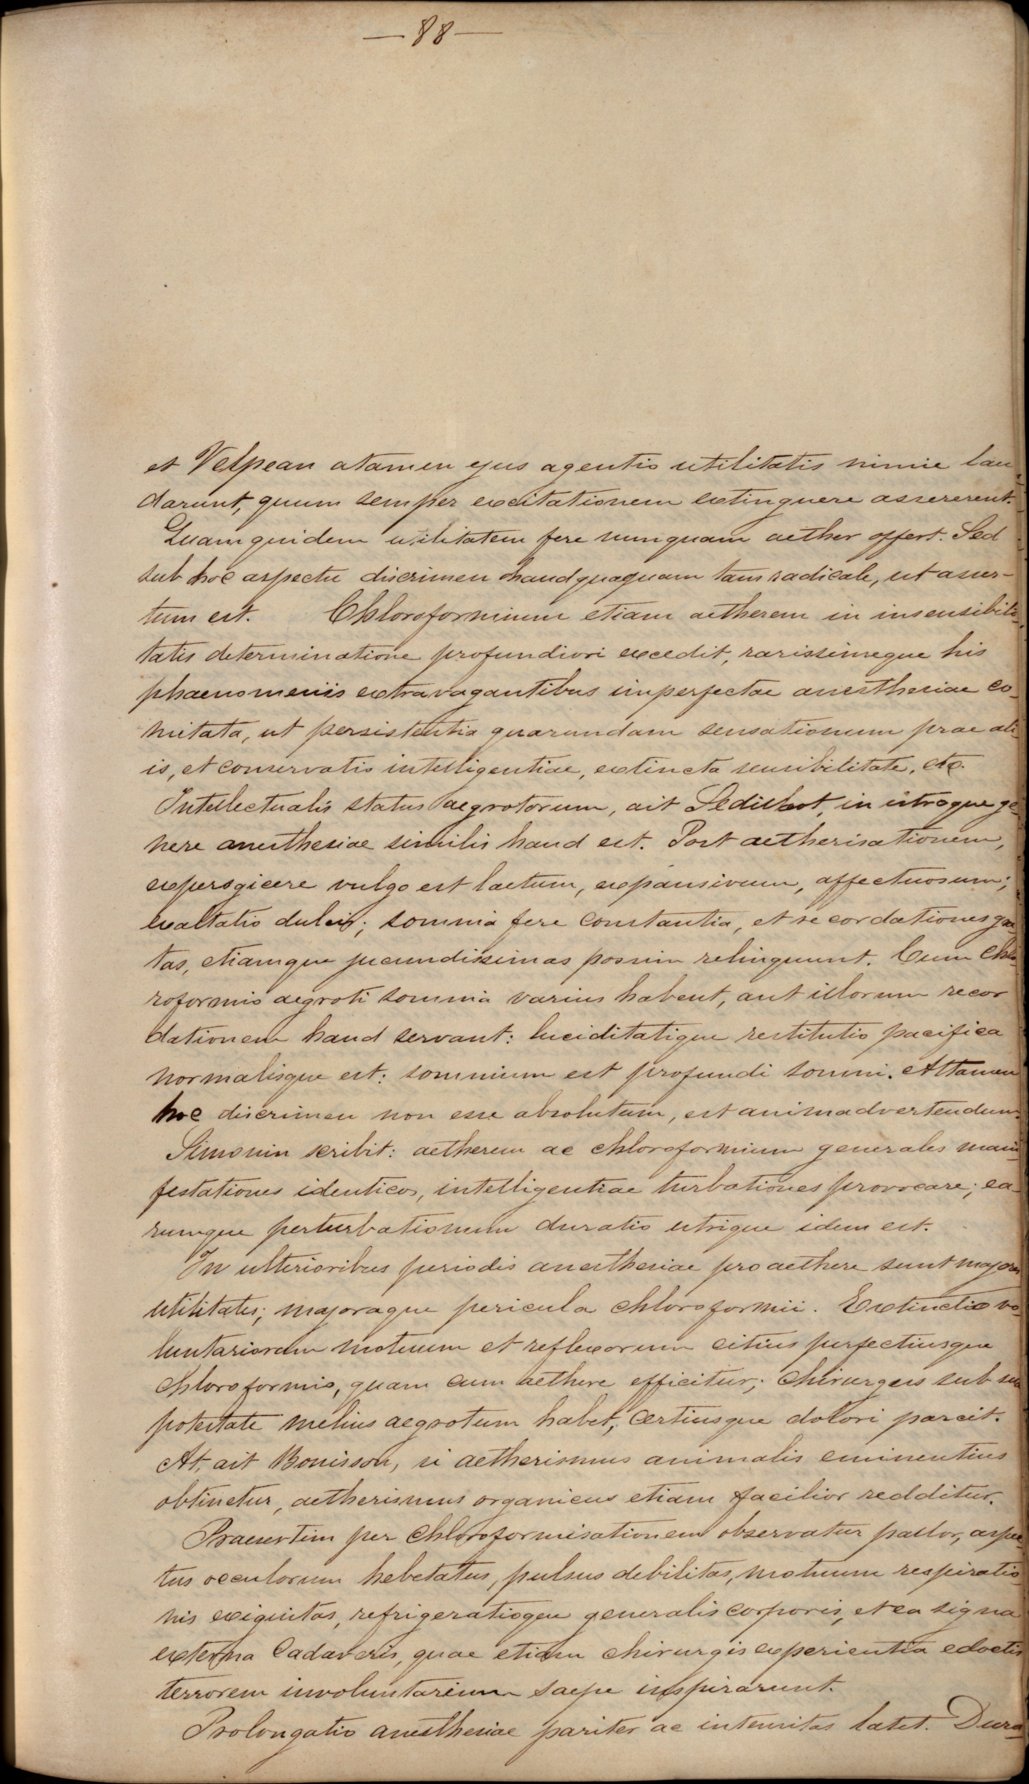 — 88 —
et Velpeau atamen ejus agentis utilitatis nimie lau-
darunt, quum semper excitationem extinguere assererent.
Quamquidem utilitatem fere nunquam aether offert. Sed
sub hoc aspectu discrimen haudquaquam tam radicale, ut asser-
tum est. Chloroformium etiam aetherem in insensibili-
tatis determinatione profundiori excedit, rarissimeque his
phaenomeniis extravagantibus imperfectae anestheriae co-
mitata, ut persistentia quarundam sensationum prae ali-
is, et conservatio intelligentiae, extincta sensibilitate, etc.
Intellectualis status aegrotorum, ait Sedillot, in utroque ge-
nere anestheriae similis haud est. Post aetherisationem,
expergicere vulgo est laetum, expansivum, affectuosum;
exaltatio dulcis; somnia fere constantia, et recordationes gra-
tas, etiamque jucundissimas possim relinquunt. Cum chlo-
roformio aegroti somnia varius habent, aut illorum recor
dationem haud servant: luciditatique restitutio pacifica
normalisque est: somnium est profundi somni. Attamen
hoc discrimen non esse absolutum, est animadvertendum.
Simonin scribit: aetherem ac chloroformium generales mani-
festationes identicas, intelligentiae turbationes provocare; ea-
rumque perturbationum duratio utrique idem est.
In ulterioribus periodis anestheriae pro aethere sunt majores
utilitates; majoraque pericula chloroformii. Extinctio vo-
luntariorum motuum et reflexorum citius perfectiusque
chloroformio, quam cum aethere efficitur; chirurgus sub sua
potestate melius aegrotum habet, certiusque dolori parcit.
At, ait Bouisson, si aetherismus animalis eminentius
obtinetur, aetherismus organicus etiam facilior redditur.
Praesertim per chloroformisationem observatur pallor, aspec-
tus occulorum hebetatus, pulsus debilitas, motuum respiratio-
nis exiguitas, refrigeratioque generalis corporis, et ea signa
externa cadaveris, quae etiam chirurgis experientia edoctis
terrorem involuntarium saepe inspirarunt.
Prolongatio anestheriae pariter ac intensitas latet. Dura-